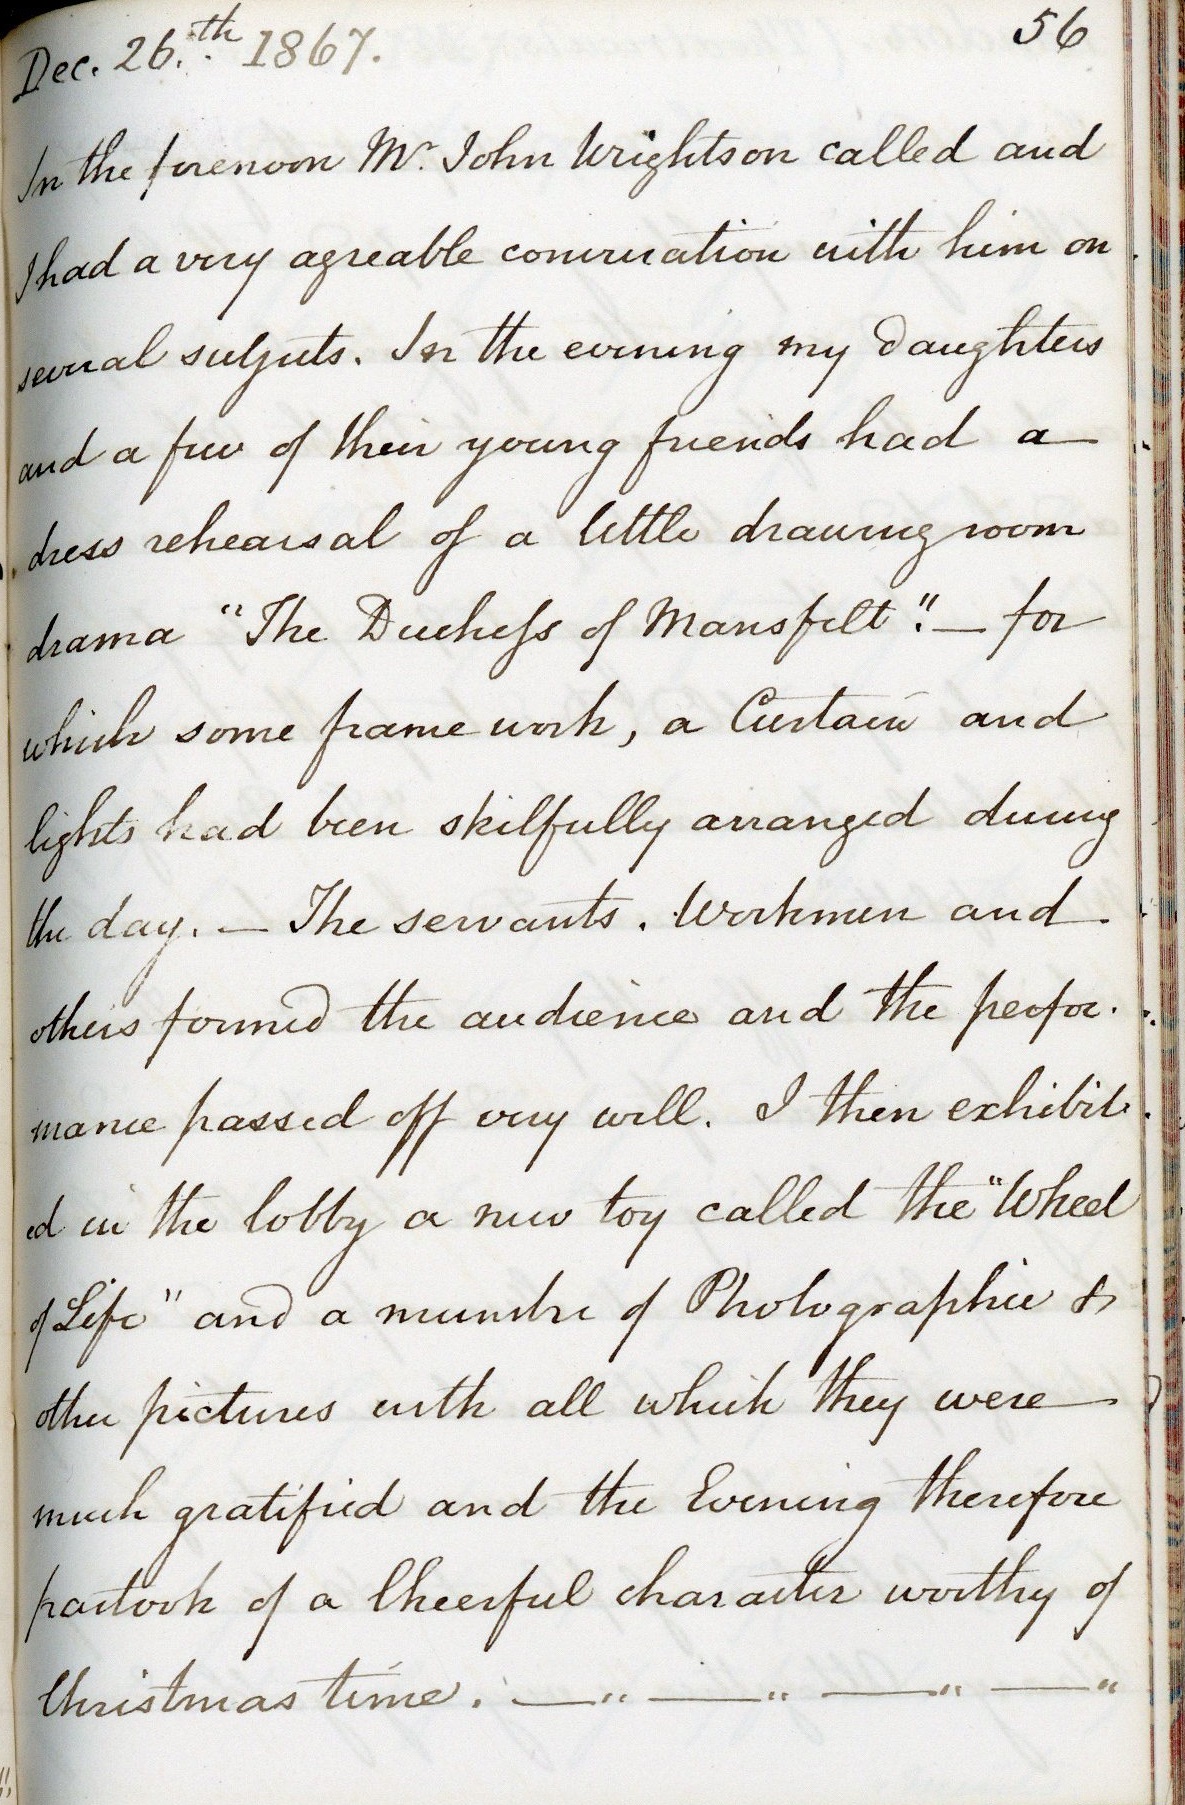 Dec. 26.th 1867.
56
In the forenoon Mr. John Wrightson called and
I had a very agreable conversation with him on
several subjects. In the evening my daughters
and a few of their young friends had a
dress rehearsal of a little drawing room
drama "The Duchess of Mansfelt". — for
which some frame work, a Curtain and
lights had been skilfully arranged during
the day. — The servants. Workmen and
others formed the audience and the perfor-
mance passed off very well. I then exhibit-
ed in the lobby a new toy called the "Wheel
of Life" and a number of Photographic &
other pictures with all which they were
much gratified and the Evening therefore
partook of a Cheerful character worthy of
Christmas time. — " — " — " — "